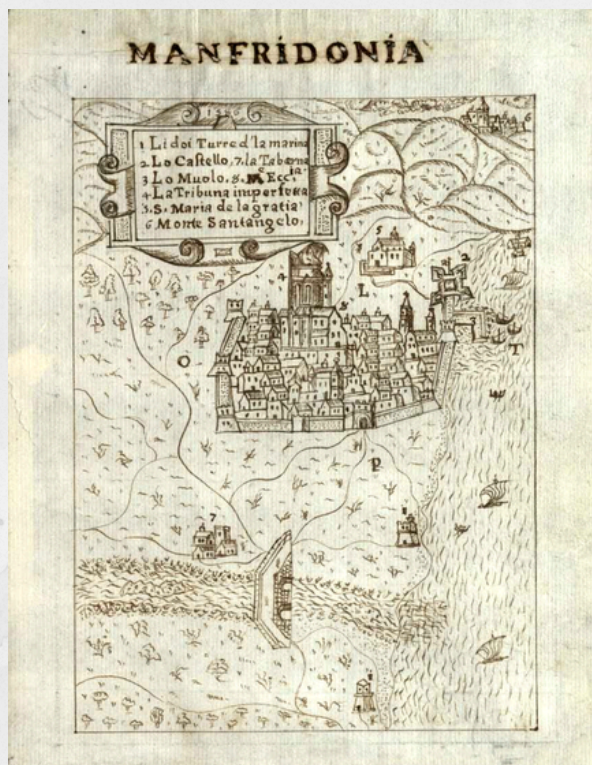 MANFRÍDONÍA
1 Li doi Turre d'la marina
2 Lo Castello, 7. la Taberna
3 Lo Muolo. 8.
4 La Tribuna imperfetta
5. S. Maria de la gratia
6 Monte Santangelo.
6
5
2
4
8
L
O
T
P
7